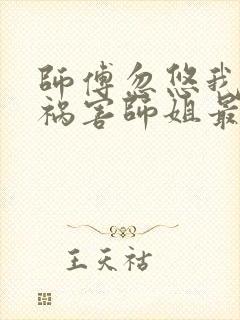 師傅忽悠我
祸害師姐最
王天祜